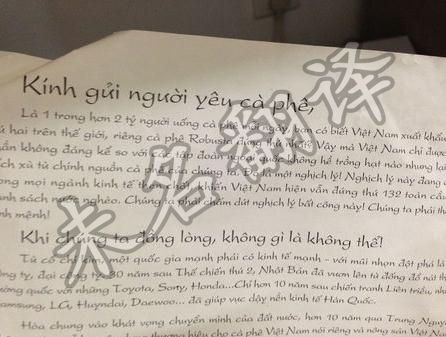 Kính gửi người yêu cà phê,
Là 1 trong hơn 2 tỷ người uống cà phê mỗi ngày, bạn có biết Việt Nam xuất khẩu
hai trên thế giới, riêng cà phê Robusta đứng thứ nhất? Vậy mà Việt Nam chỉ được
không đáng kể so với các tập đoàn ngoại quốc không hề trồng hạt nào nhưng lại
xa từ chính nguồn cà phê của chúng ta. Đó là một nghịch lý! Nghịch lý này đang
mọi ngành kinh tế khiến Việt Nam hiện vẫn đứng thứ 132 toàn cầu
sách nước nghèo. Chúng ta phải chấm dứt nghịch lý bất công này! Chúng ta phải
mệnh!
Khi chúng ta đồng lòng, không gì là không thể!
Từ cổ chí kim, một quốc gia mạnh phải có kinh tế mạnh - với mũi nhọn đột phá là
ty, đại công ty. 30 năm sau Thế chiến thứ 2, Nhật Bản đã vươn lên từ đống đổ nát
cường quốc với những Toyota, Sony, Honda...Chỉ hơn 10 năm sau chiến tranh Liên triều,
Samsung, LG, Huyndai, Daewoo... đã giúp vực dậy nền kinh tế Hàn Quốc.
Hòa chung vào khát vọng chuyển mình của đất nước, hơn 10 năm qua Trung Nguyên
thương hiệu cho cà phê Việt Nam nói riêng và nông sản Việt Nam
未名翻译